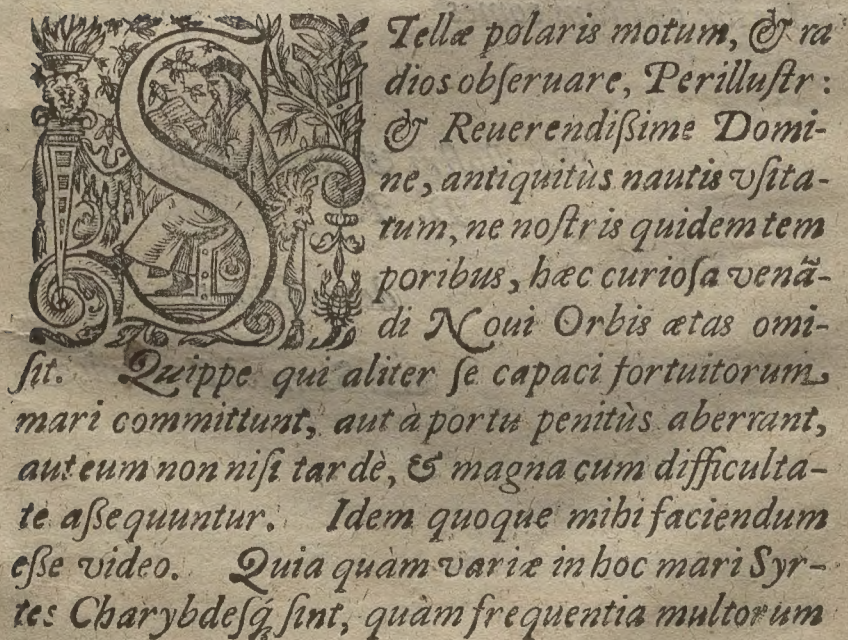 STellæ polaris motum, & ra
dios obſeruare, Perilluſtr:
& Reuerendiſſime Domi-
ne, antiquitùs nautis vſita-
tum, ne noſtris quidem tem
poribus, hæc curioſa venã-
di Noui Orbis ætas omi-
ſit. Quippe qui aliter ſe capaci fortuitorum
mari committunt, aut à portu penitùs aberrant,
aut eum non niſi tardè, & magna cum difficulta-
te aſſequuntur. Idem quoque mihi faciendum
eſſe video. Quia quàm variæ in hoc mari Syr-
tes Charybdeſq́; ſint, quàm frequentia multorum